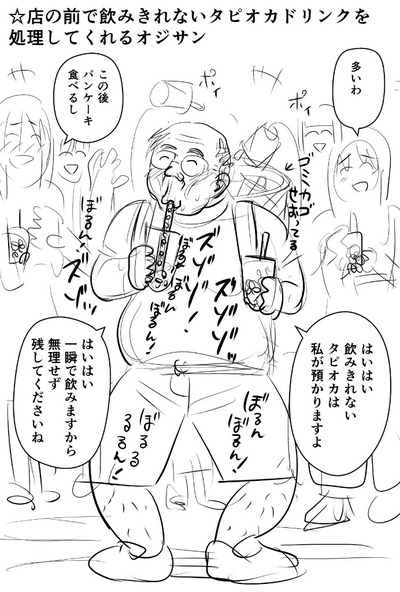 ☆店の前で飲みきれないタピオカドリンクを
処理してくれるオジサン
多いわ
この後
パンケーキ
食べるし
ゴミカゴ
せおってる
ぼるん!
ぼるん!
ズゾゾ
ズゾゾ!
ズゾゾ!
ぼるん
ぼるん
ぼるん!
はいはい
飲みきれない
タピオカは
私が預かりますよ
はいはい
一瞬で飲みますから
無理せず
残してくださいね
ぼるん
ぼるん!
ぼるる
るるん!